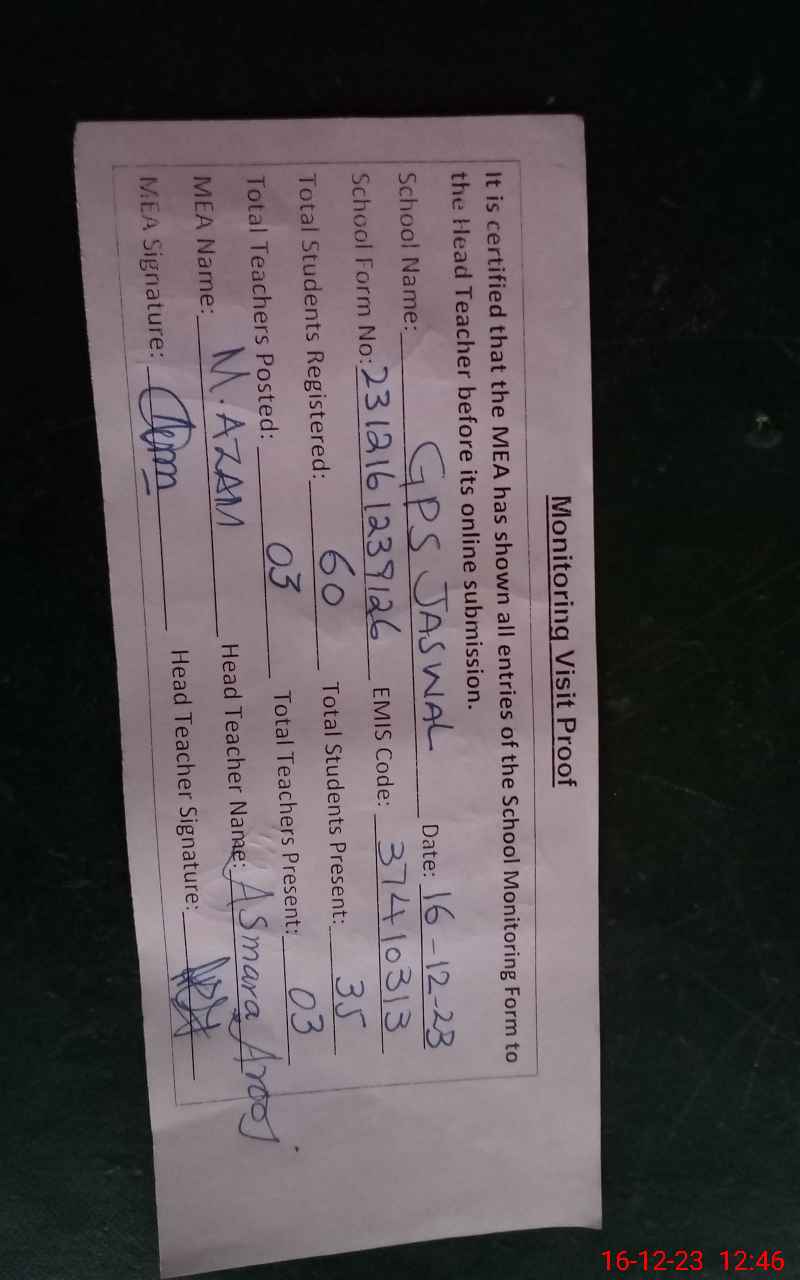 Monitoring Visit Proof
It is certified that the MEA has shown all entries of the School Monitoring Form to
the Head Teacher before its online submission.
School Name: GPS JASWAL Date: 16-12-23
School Form No: 2312161239126 EMIS Code: 37410313
Total Students Registered: 60 Total Students Present: 35
Total Teachers Posted: 03 Total Teachers Present: 03
MEA Name: M. AZAM Head Teacher Name: Asmara Arooj
MEA Signature: Head Teacher Signature:
16-12-23 12:46